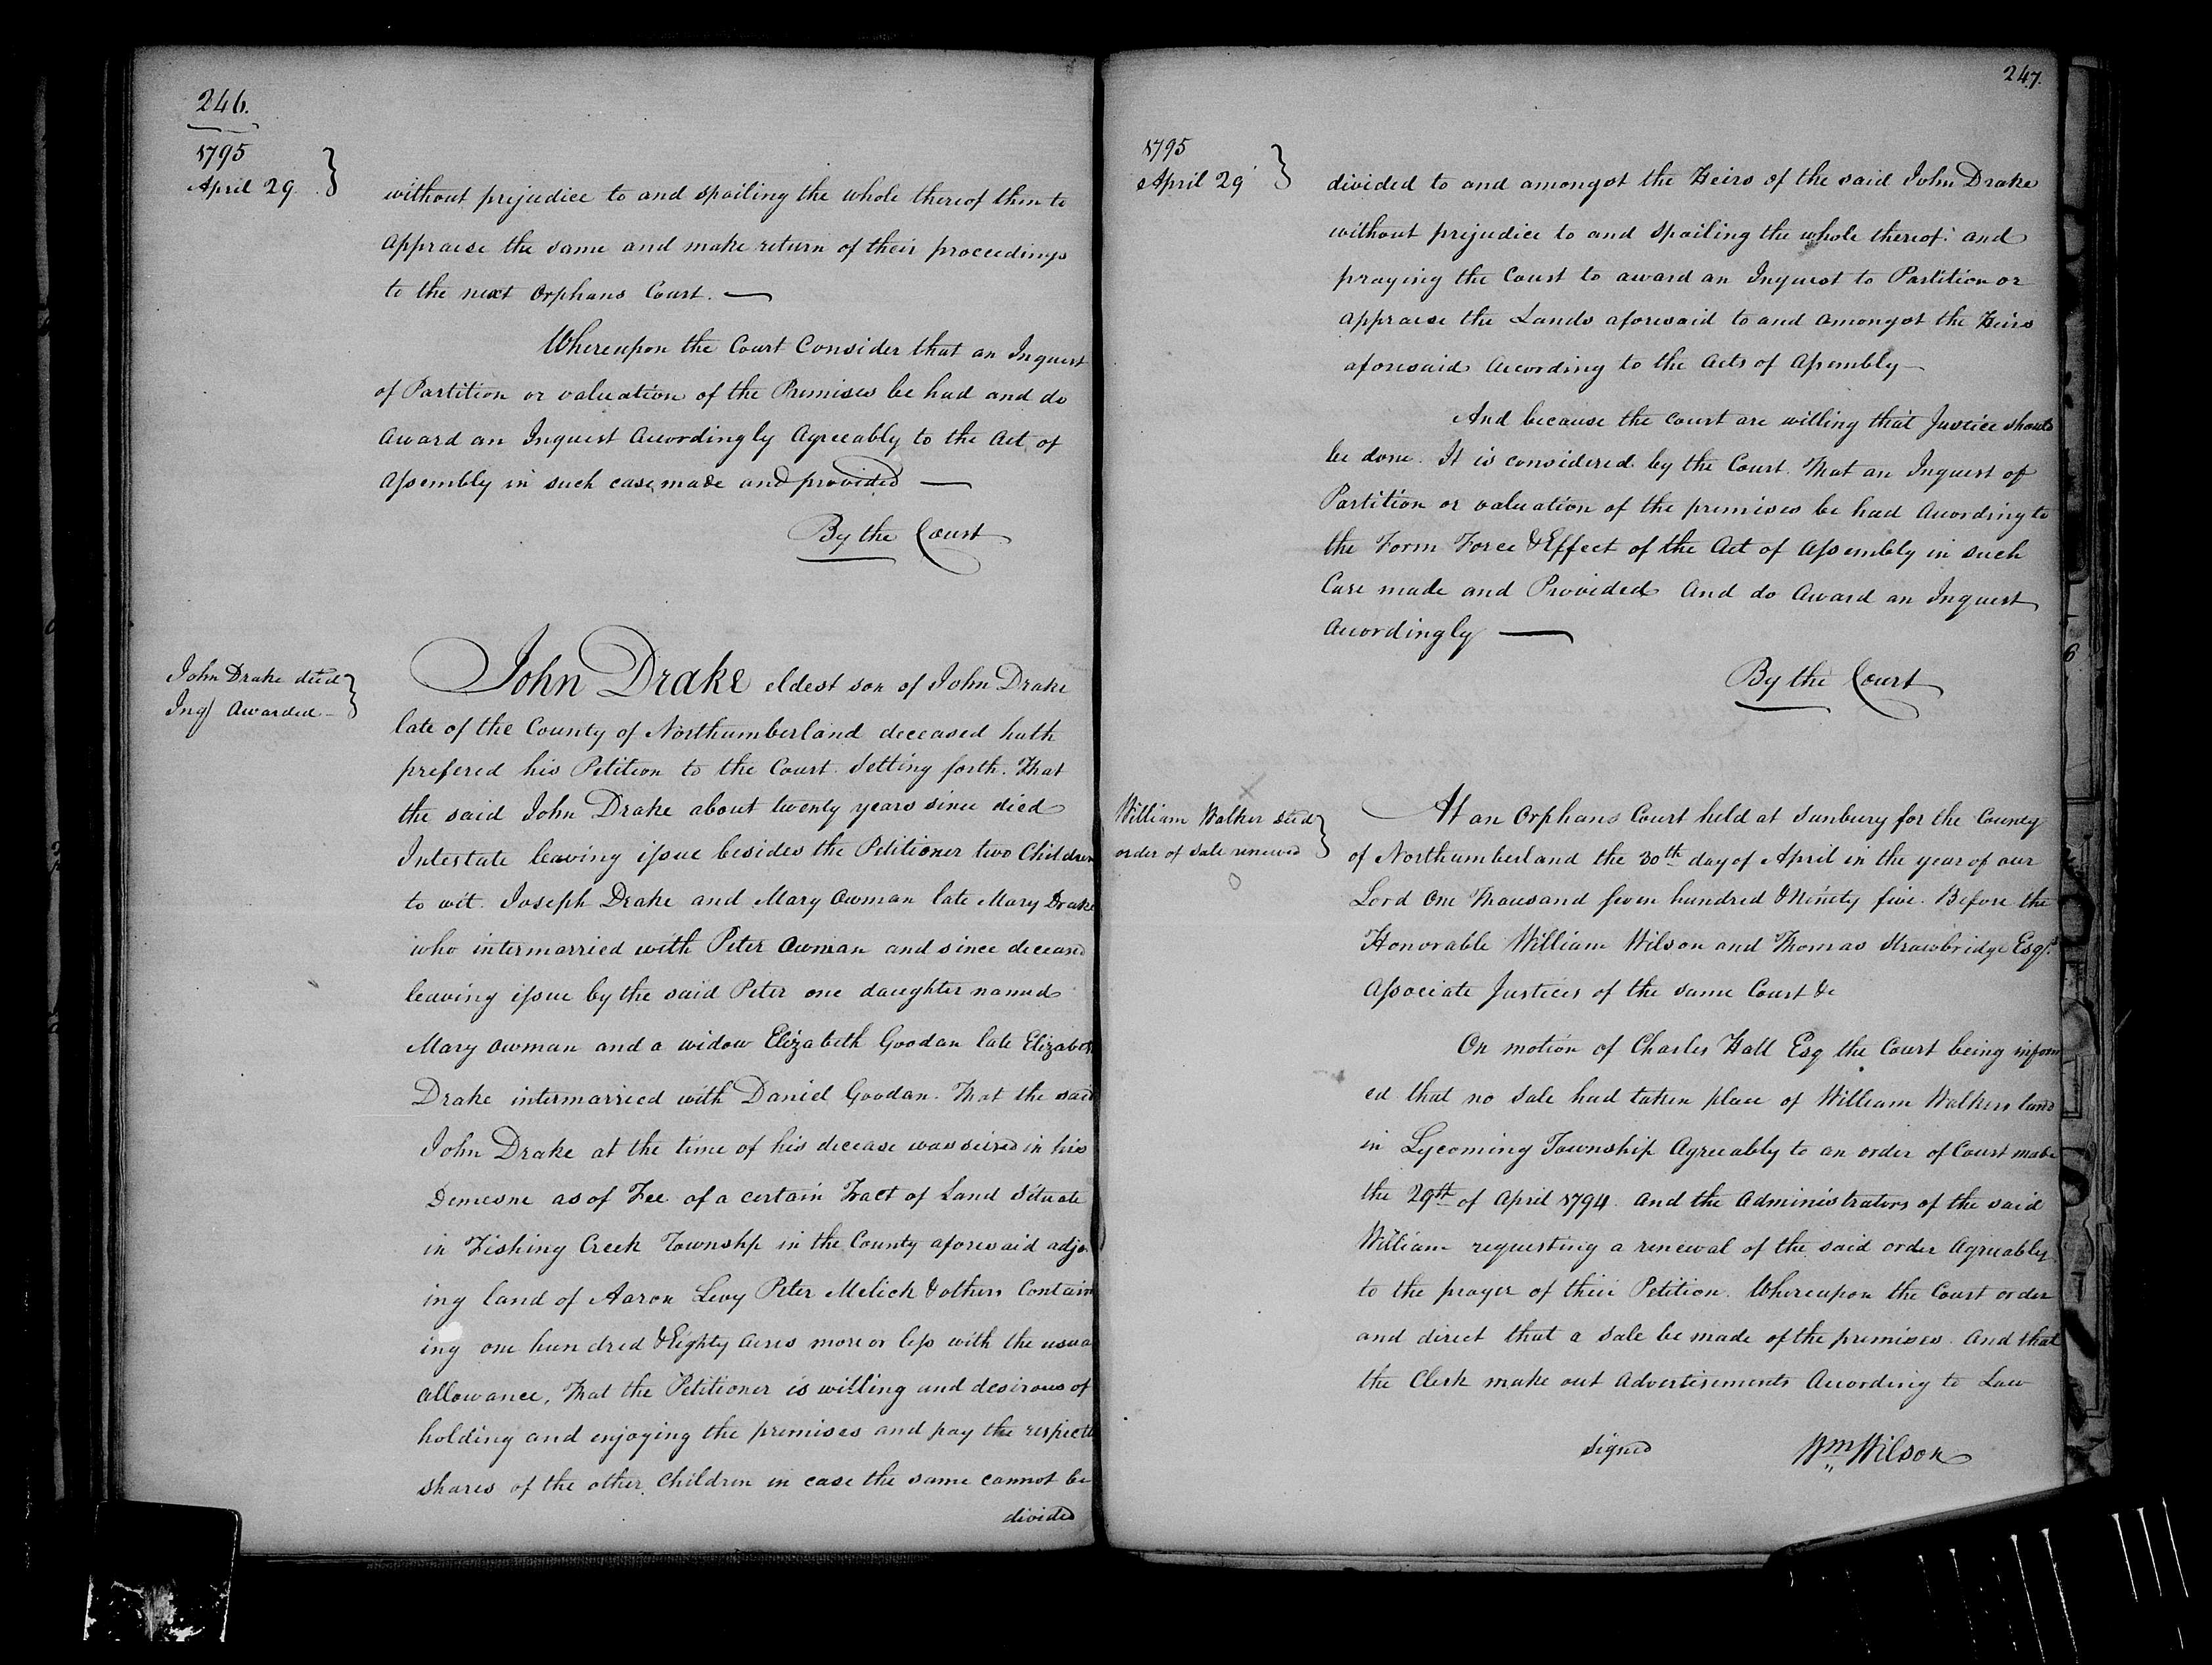 246.
1795
April 29.
without prejudice to and spoiling the whole thereof then to
appraise the same and make return of their proceedings
to the next Orphans Court. —
Whereupon the Court Consider that an Inquest
of Partition or valuation of the Premises be had and do
award an Inquest Accordingly Agreeably to the Act of
Assembly in such case made and provided —
By the Court
John Drake decd
Inqt Awarded —
John Drake eldest son of John Drake
late of the County of Northumberland deceased hath
prefered his Petition to the Court Setting forth. That
the said John Drake about twenty years since died
Intestate leaving issue besides the Petitioner two Children
to wit. Joseph Drake and Mary Owman late Mary Drake
who intermarried with Peter Owman and since deceased
leaving issue by the said Peter one daughter named
Mary Owman and a widow Elizabeth Goodan late Elizabeth
Drake intermarried with Daniel Goodan. That the said
John Drake at the time of his decease was seised in his
Demesne as of Fee of a certain Tract of Land Situate
in Fishing Creek Township in the County aforesaid adjo
ing land of Aaron Levy Peter Melick & others Contain
ing one hundred & Eighty Acres more or less with the usual
allowance, That the Petitioner is willing and desirous of
holding and enjoying the premises and pay the respective
shares of the other Children in case the same cannot be
divided
247.
1795
April 29
divided to and amongst the Heirs of the said John Drake
without prejudice to and Spoiling the whole thereof: and
praying the Court to award an Inquest to Partition or
appraise the Lands aforesaid to and amongst the Heirs
aforesaid According to the Acts of Assembly —
And because the Court are willing that Justice should
be done. It is considered by the Court. That an Inquest of
Partition or valuation of the premises be had According to
the Form Force & Effect of the Act of Assembly in such
Case made and Provided And do Award an Inquest
Accordingly —
By the Court
William Walker decd
order of Sale renewed
At an Orphans Court held at Sunbury for the County
of Northumberland the 30th day of April in the year of our
Lord One Thousand seven hundred & Ninety five. Before the
Honorable William Wilson and Thomas Strawbridge Esqrs.
Associate Justices of the same Court &c
On motion of Charles Hall Esq the Court being inform
ed that no Sale had taken place of William Walkers land
in Lycoming Township Agreeably to an order of Court made
the 29th of April 1794. And the Administrators of the said
William requesting a renewal of the said order Agreeably
to the prayer of their Petition. Whereupon the Court order
and direct that a Sale be made of the premises. And that
the Clerk make out Advertisements According to Law
Signed Wm Wilson